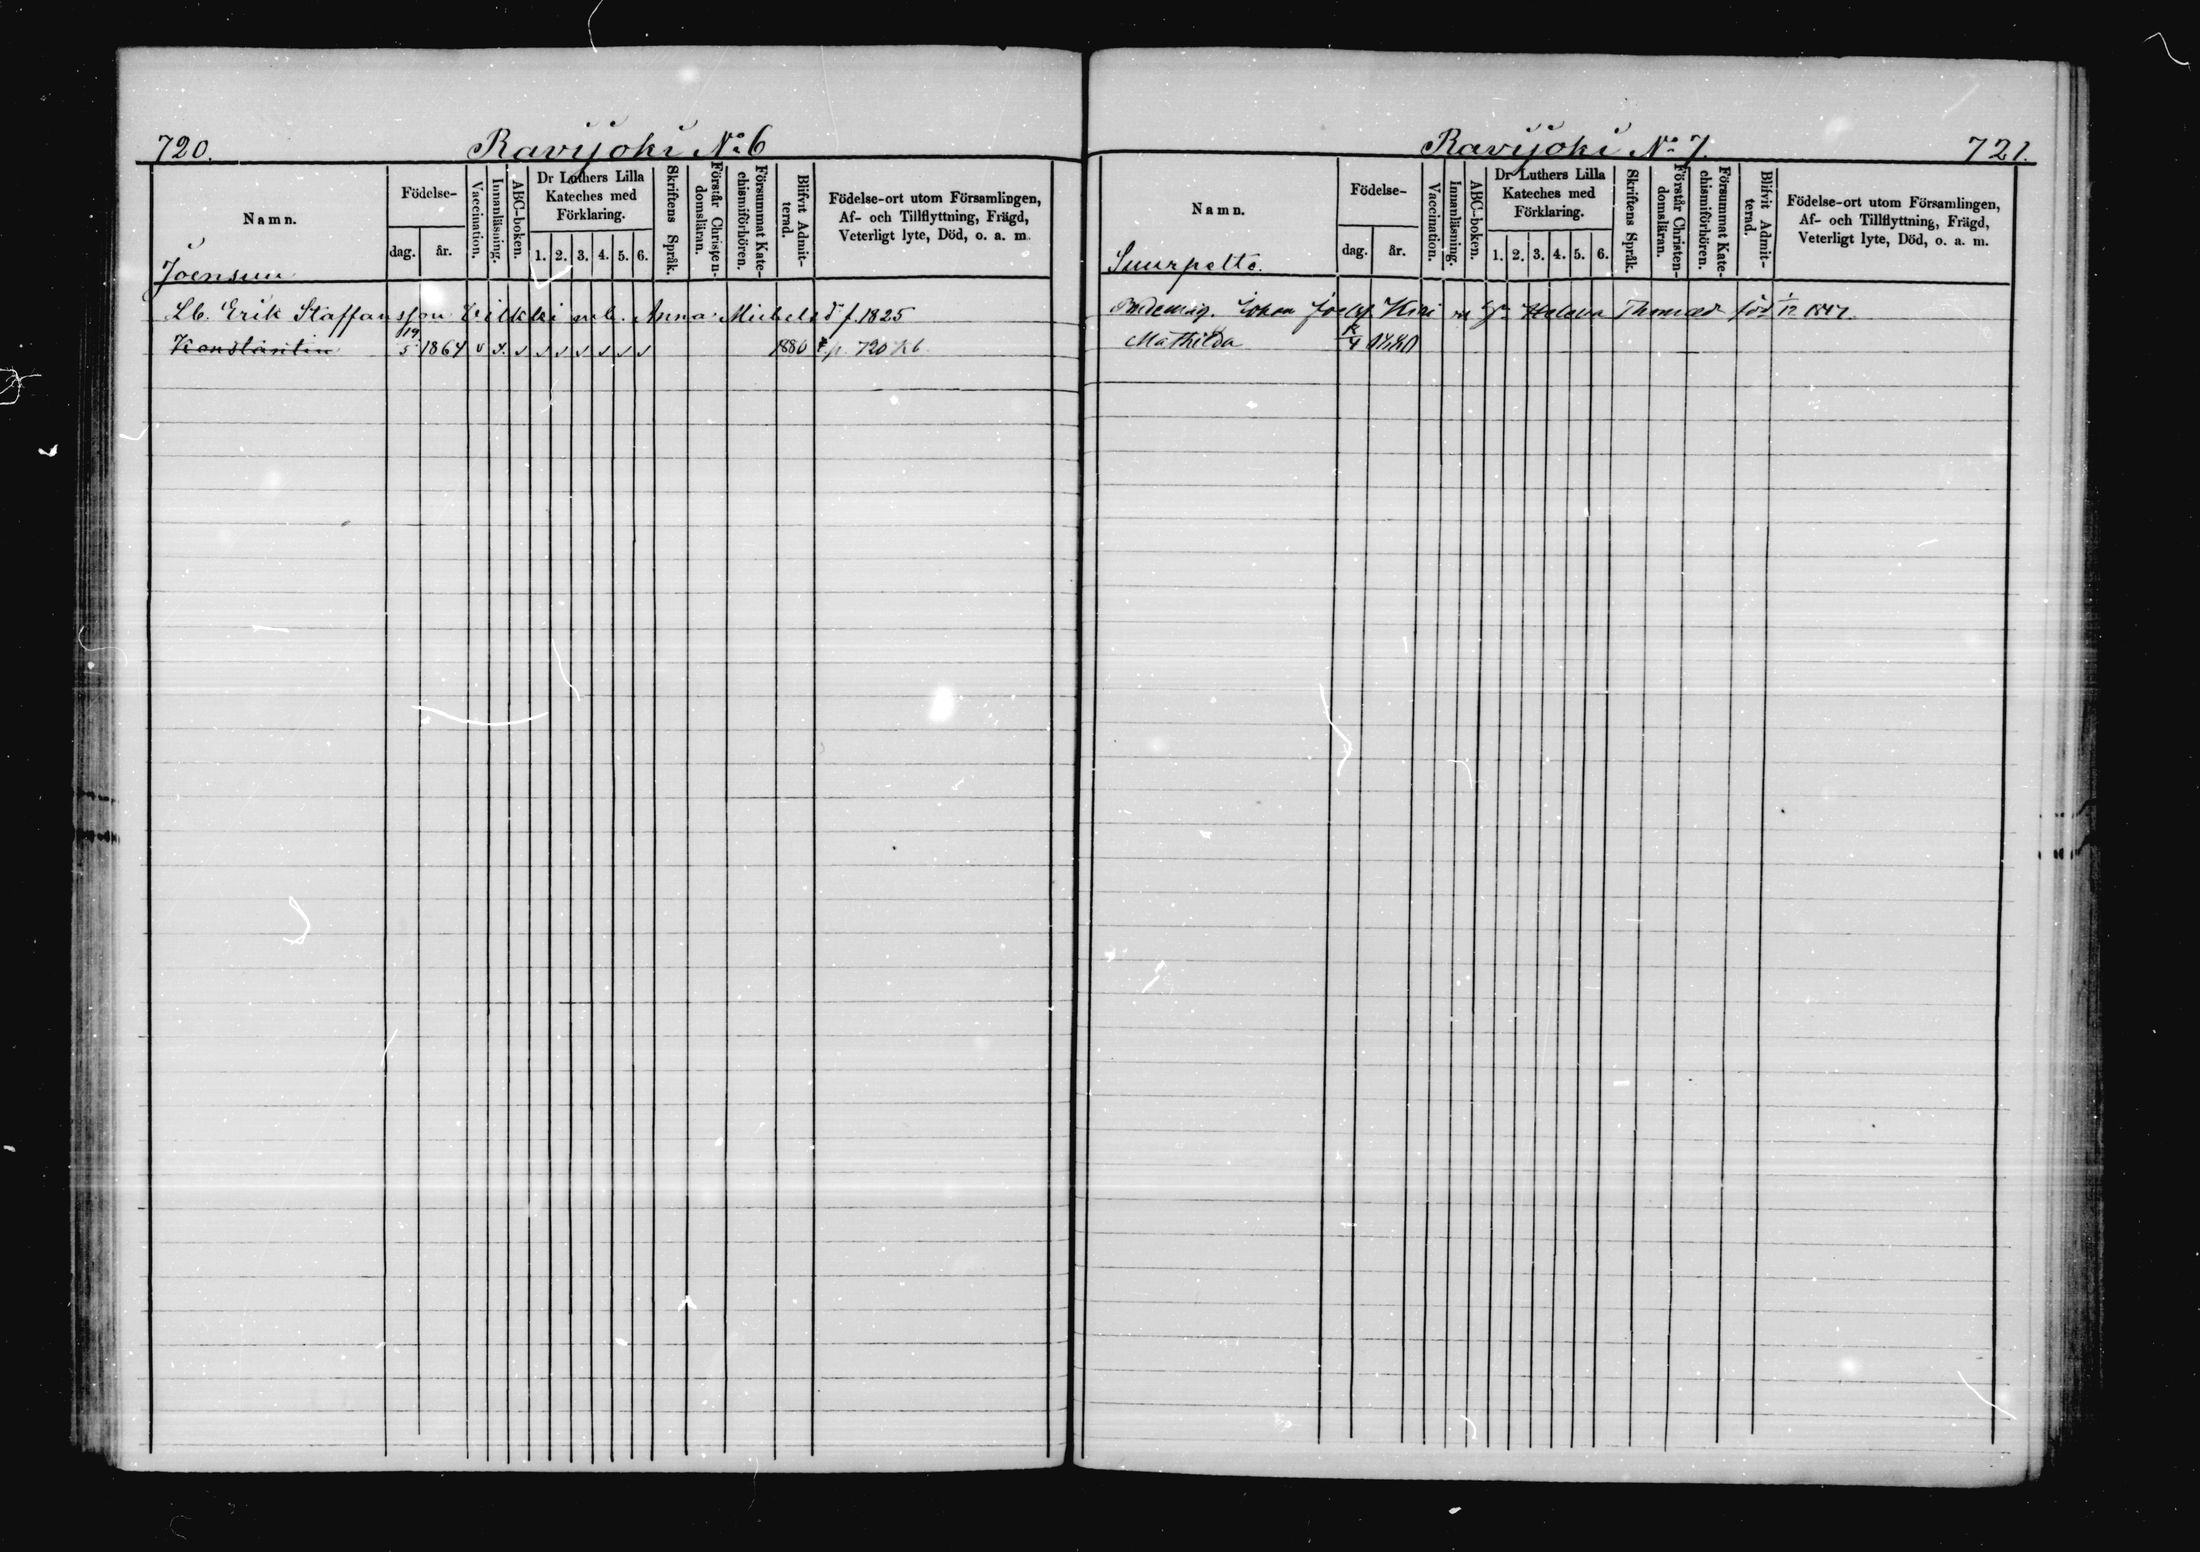 720.
Ravijoki No 6
Namn.
Födelse-
dag.
år.
Vaccination.
Innanläsning.
ABC-boken.
Dr Luthers Lilla
Kateches med
Förklaring.
1. 2. 3. 4. 5. 6.
Skriftens Språk.
Förstår Christen-
domsläran.
Försummat Kate-
chismiförhören.
Blifvit Admit-
terad.
Födelse-ort utom Församlingen,
Af- och Tillflyttning, Frägd,
Veterligt lyte, Död, o. a. m.
Joensuu
Lb. Erik Staffansson Vilkki m. h. Anna Michelsd f. 1825
Konstantin 19/5 1864 v x v v v v v v v 1880 p. 720 Kb.
Ravijoki No 7.
721.
Namn.
Födelse-
dag.
år.
Vaccination.
Innanläsning.
ABC-boken.
Dr Luthers Lilla
Kateches med
Förklaring.
1. 2. 3. 4. 5. 6.
Skriftens Språk.
Förstår Christen-
domsläran.
Försummat Kate-
chismiförhören.
Blifvit Admit-
terad.
Födelse-ort utom Församlingen,
Af- och Tillflyttning, Frägd,
Veterligt lyte, Död, o. a. m.
Suurpelto.
Johan Josef Helena Thomasd född
Mathilda